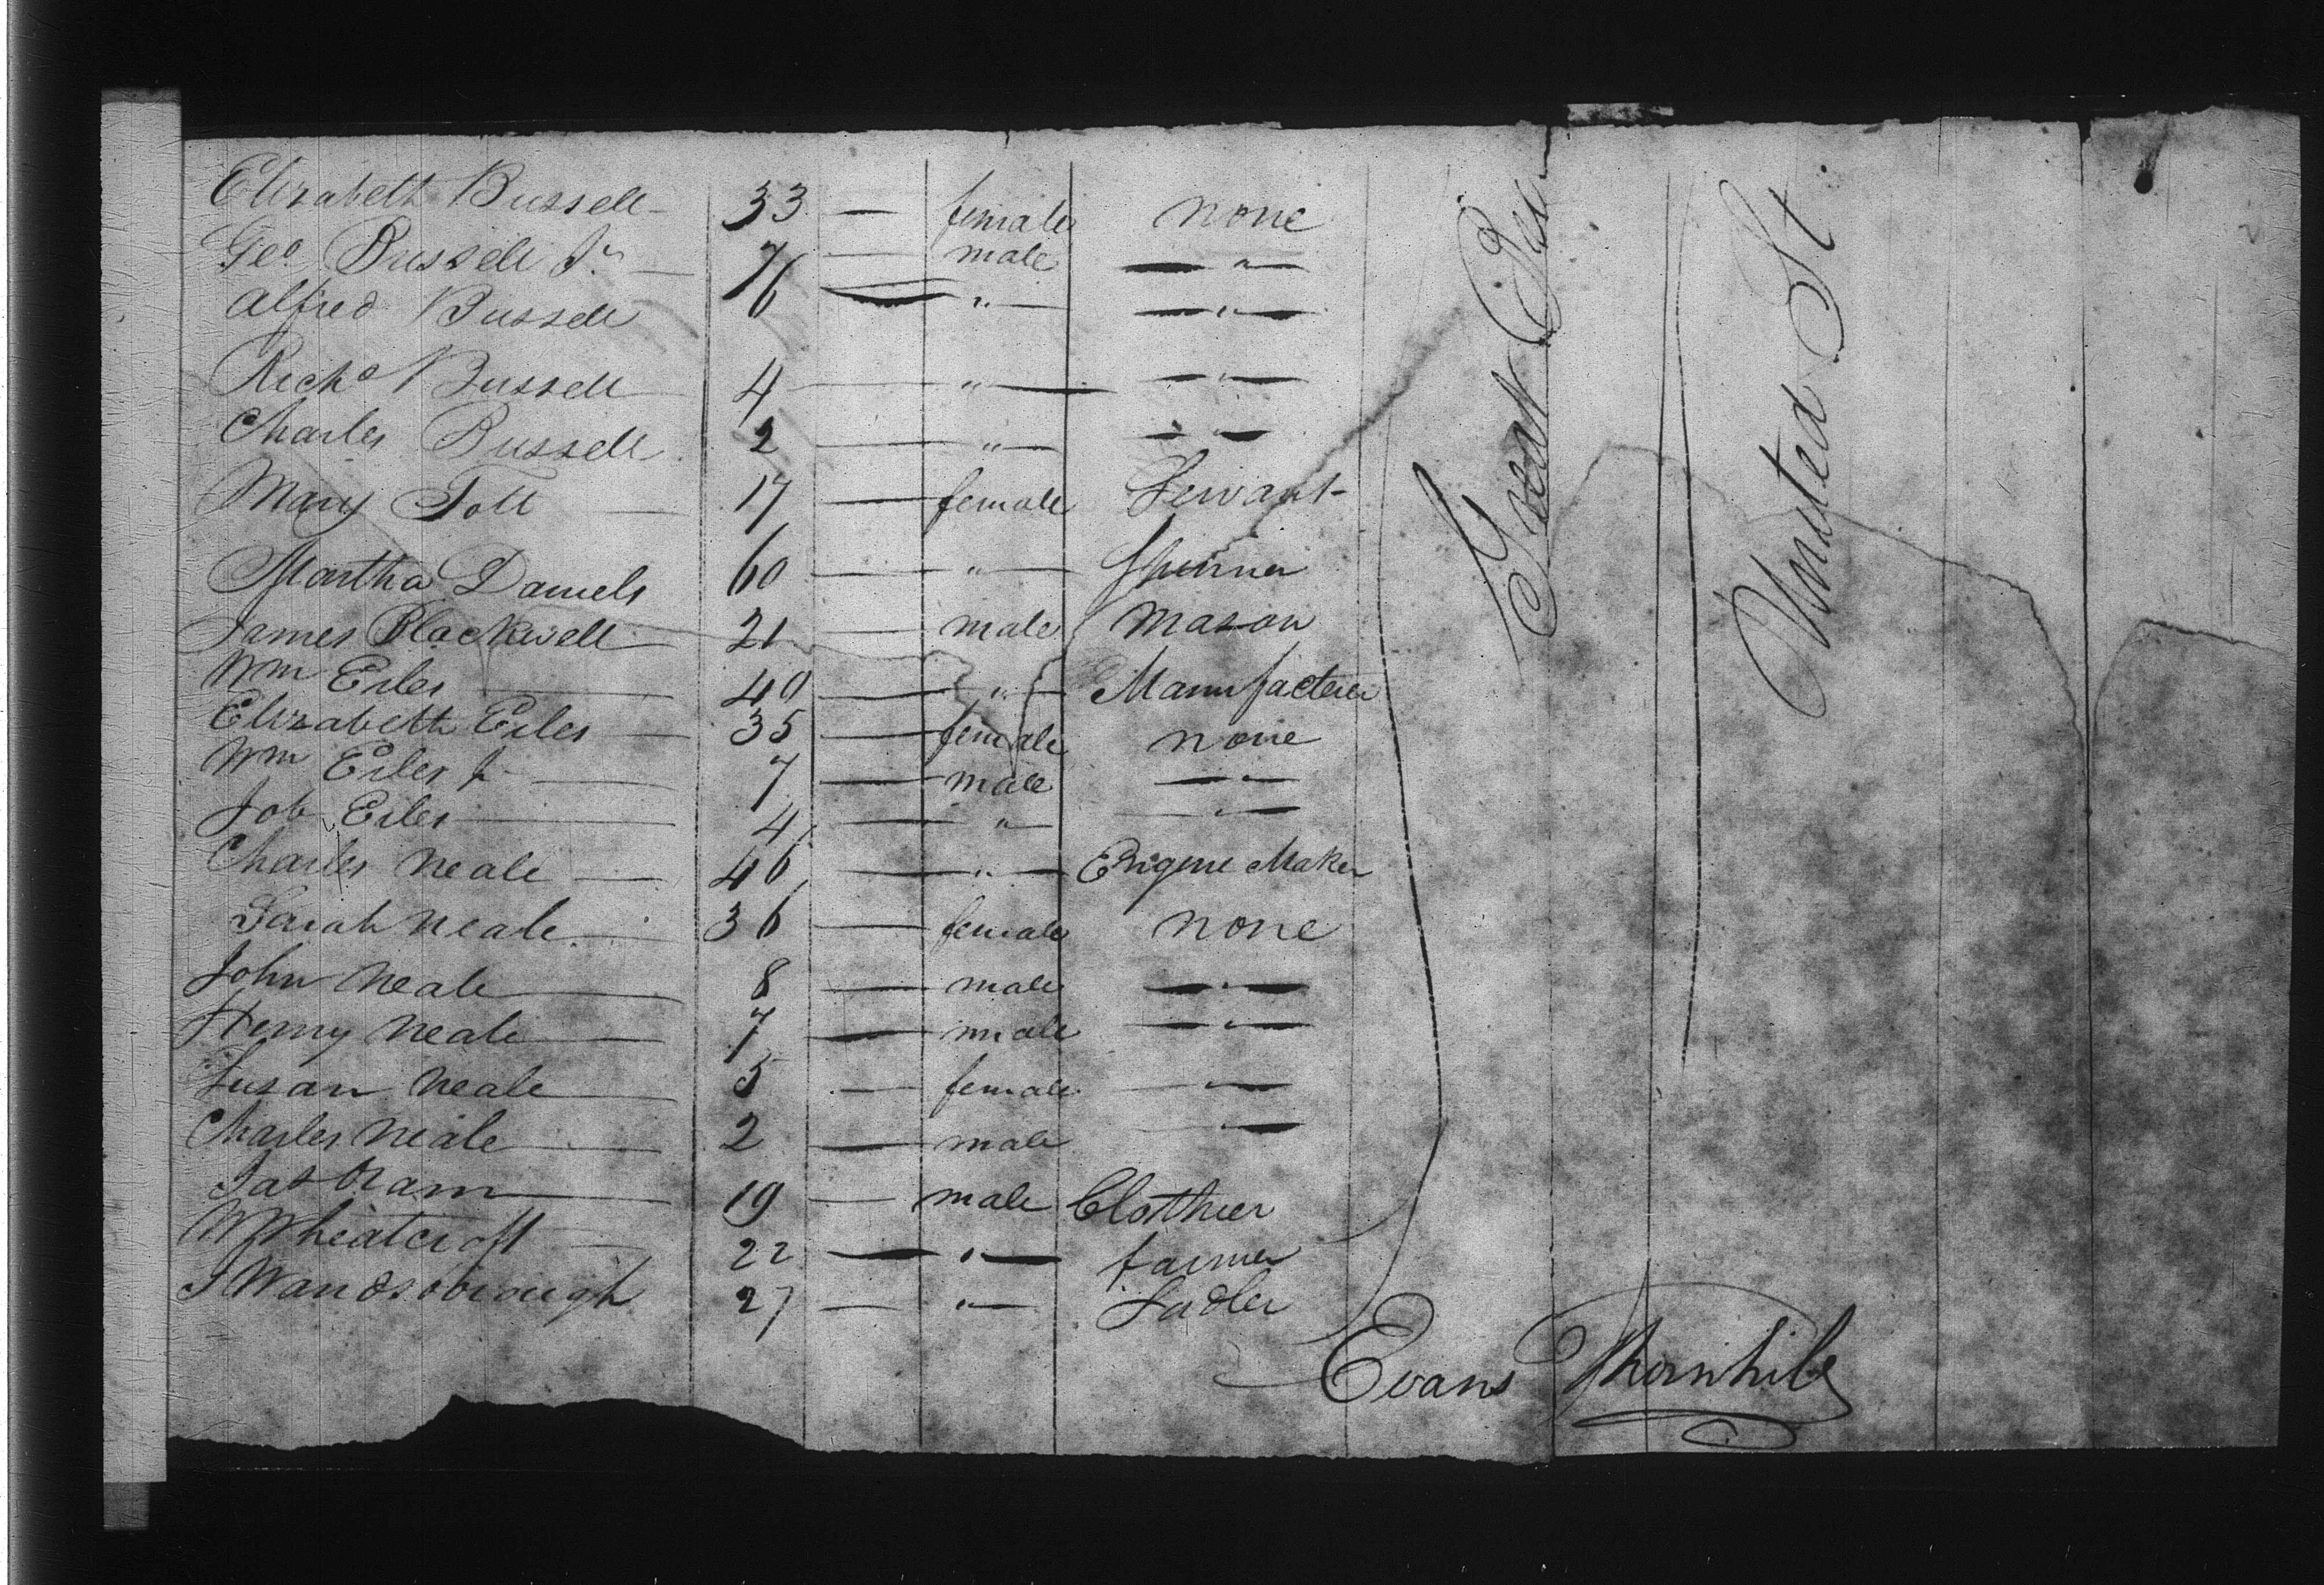 Elizabeth Bussell 33 — female none
Geo Bussell Jr — 7 — male — " —
Alfred Bussell 6 — " — — " —
Richd Bussell 4 — " — — " —
Charles Bussell 2 — " — — " —
Mary Toll — 17 — female Servant
Martha Daniels 60 — " — Spinner
James Blackwell 21 — male Mason
Wm Eiles — 40 — " — Manufacterer
Elizabeth Eiles — 35 — female none
Wm Eiles Jr — 7 — male — " —
Job Eiles — 4 — " — — " —
Charles Neale — 46 — " — Engine Maker
Sarah Neale — 36 — female none
John Neale — 8 — male — " —
Henry Neale — 7 — male — " —
Susan Neale — 5 — female — " —
Charles Neale — 2 — male — " —
Jas Oram — 19 — male Clothier
W Wheatcroft — 22 — " — farmer
J Wandsborough 27 — " — Sadler
Great
United St
Evans Thornhill